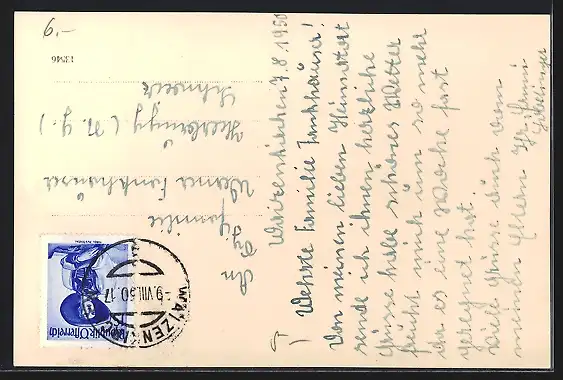 6.-
13946
Waizenkirchen 7.8.1950
Werte Familie Fankhauser!
Von meinem lieben Heimatort
sende ich ihnen herzliche
Grüsse habe schönes Wetter
freut mich um so mehr
da es eine Woche fast
geregnet hat.
Viele Grüsse auch von
meinen Eltern Ihr
An
Familie
Werner Fankhauser
Schweiz
Republik Österreich
WAIZENK
-9.VIII.50.17